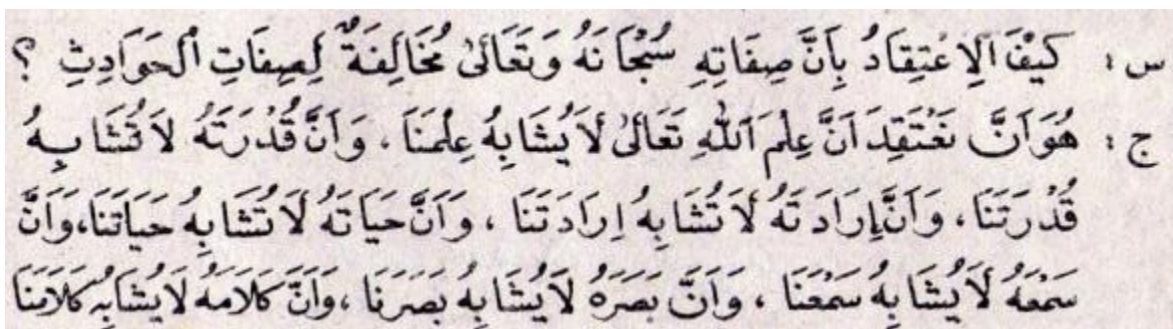 س : كَيْفَ الْاِعْتِقَادُ بِاَنَّ صِفَاتِهِ سُبْحَانَهُ وَتَعَالىٰ مُخَالِفَةٌ لِصِفَاتِ الْحَوَادِثِ ؟
ج : هُوَ اَنَّ نَعْتَقِدَ اَنَّ عِلْمَ اللهِ تَعَالىٰ لَا يُشَابِهُ عِلْمَنَا ، وَاَنَّ قُدْرَتَهُ لَا تُشَابِهُ
قُدْرَتَنَا ، وَاَنَّ إِرَادَتَهُ لَا تُشَابِهُ اِرَادَتَنَا ، وَاَنَّ حَيَاتَهُ لَا تُشَابِهُ حَيَاتَنَا، وَاَنَّ
سَمْعَهُ لَا يُشَابِهُ سَمْعَنَا ، وَاَنَّ بَصَرَهُ لَا يُشَابِهُ بَصَرَنَا ، وَاَنَّ كَلَامَهُ لَا يُشَابِهُ كَلَامَنَا